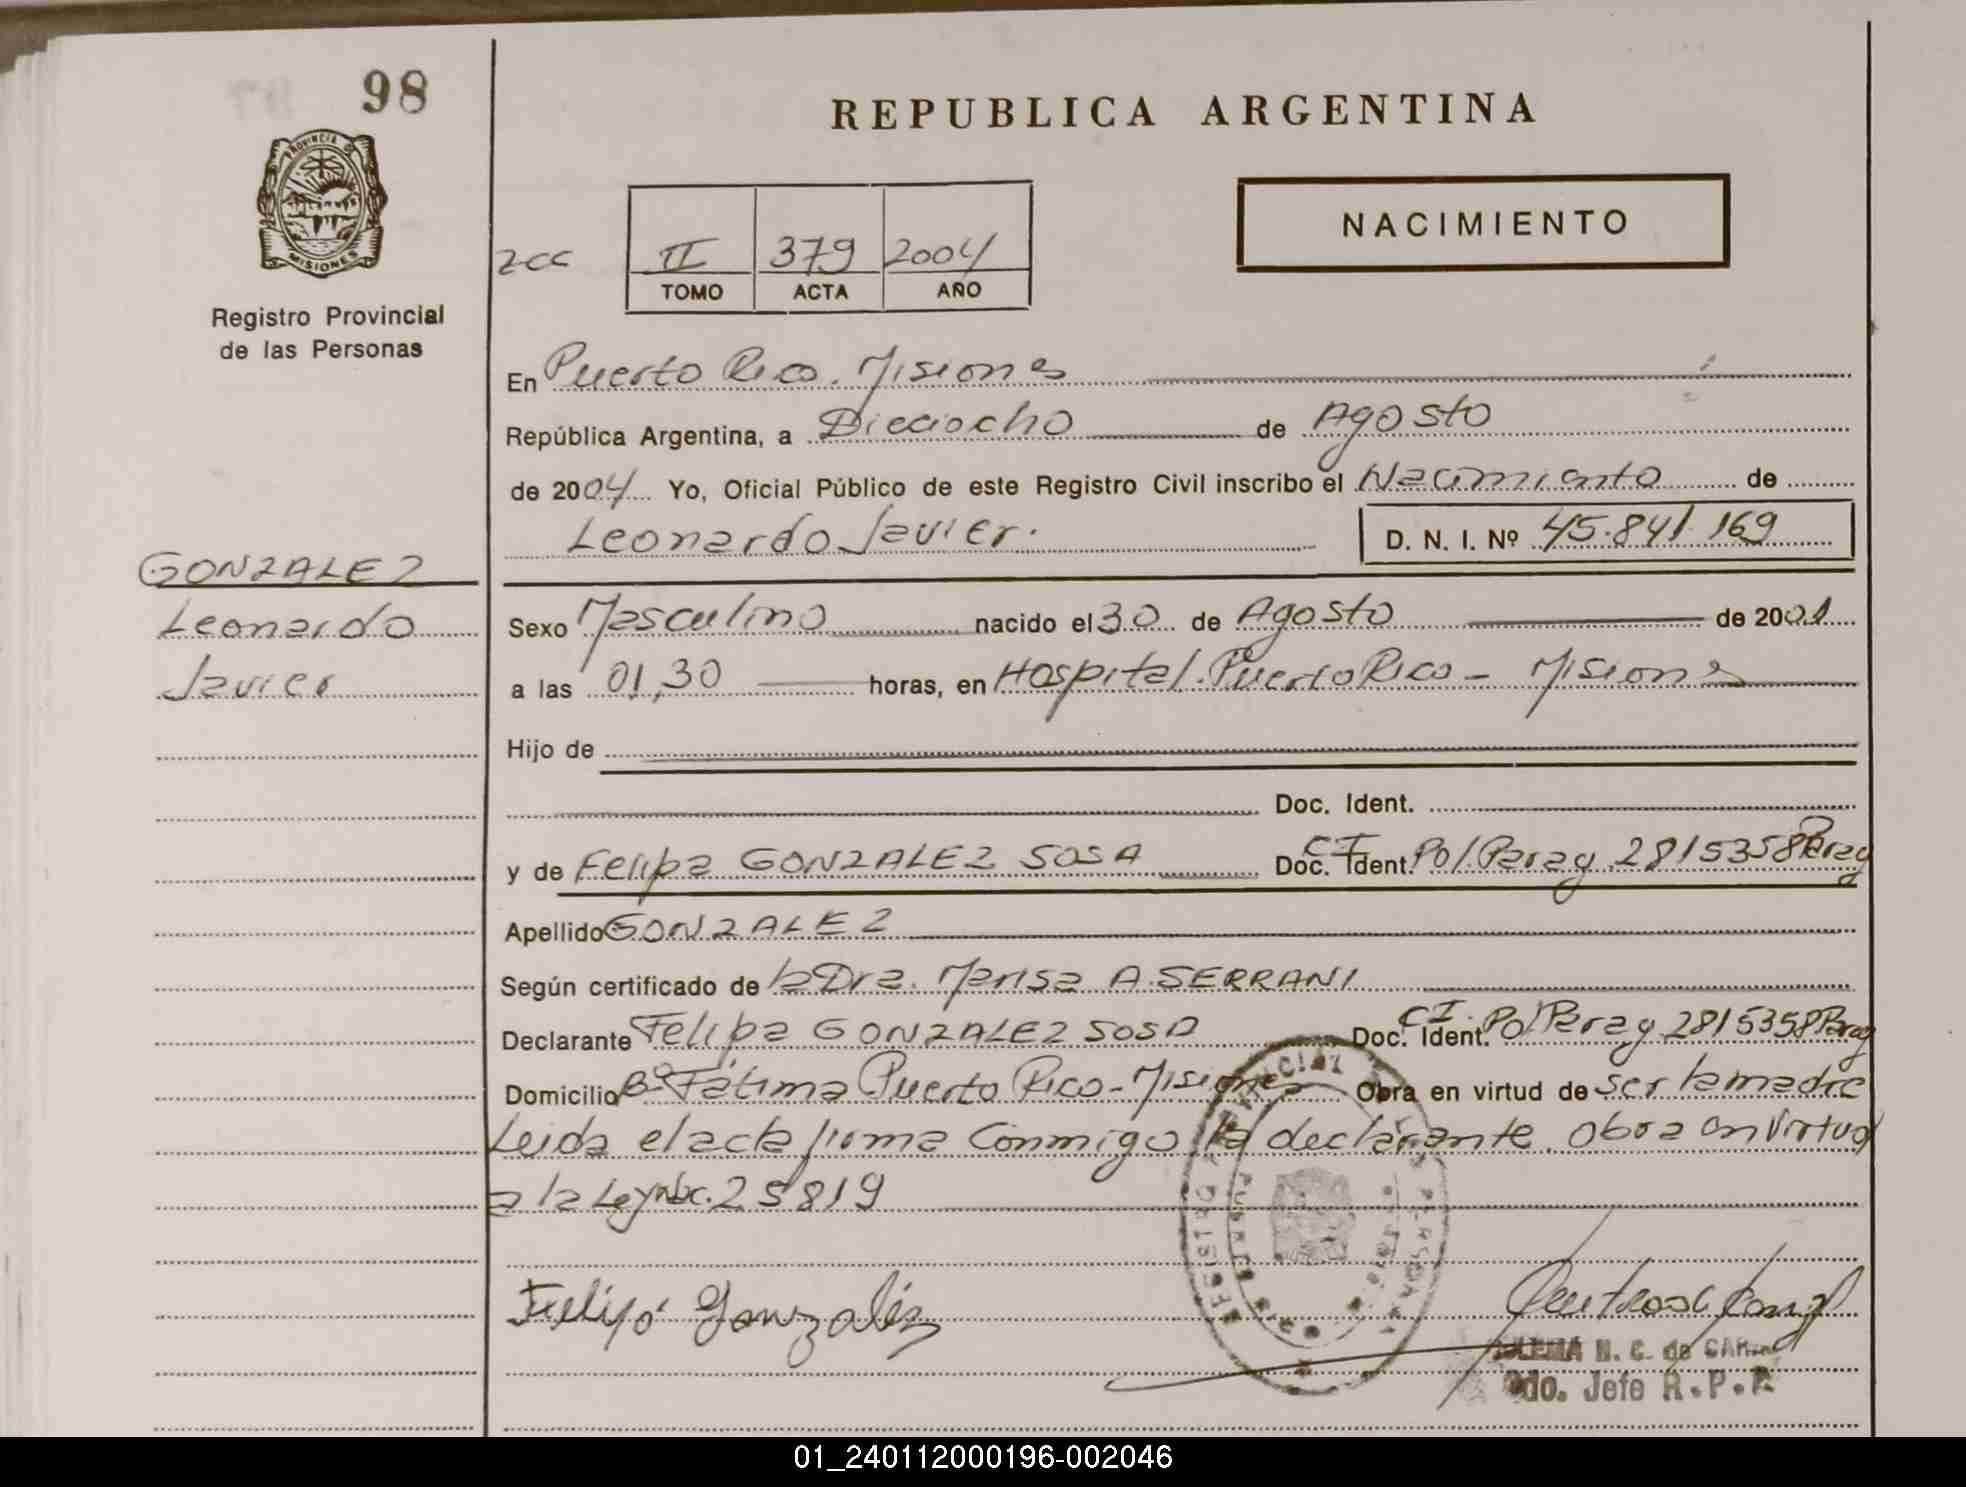 98
REPUBLICA ARGENTINA
PROVINCIA DE
MISIONES
Registro Provincial
de las Personas
NACIMIENTO
2cc
II 379 2004
TOMO ACTA AÑO
En Puerto Rico. Misiones
República Argentina, a Dieciocho de Agosto
de 2004 Yo, Oficial Público de este Registro Civil inscribo el Nacimiento de
Leonardo Javier.
D. N. I. Nº 45.841.169
GONZALEZ
Leonardo
Javier
Sexo Masculino nacido el 30 de Agosto de 2001
a las 01,30 horas, en Hospital. Puerto Rico - Misiones
Hijo de
Doc. Ident.
y de Felipa GONZALEZ SOSA Doc. Ident. CI Pol. Parag. 2815358 Parag
Apellido GONZALEZ
Según certificado de la Dra. Marisa A. SERRANI
Declarante Felipa GONZALEZ SOSA Doc. Ident. CI. Pol Parag 2815358 Parag
Domicilio Bº Fátima Puerto Rico - Misiones Obra en virtud de ser la madre
Leida el acta firma conmigo la declarante. obra en virtud
a la Ley Nac. 25819
Felipa Gonzalez
REGISTRO PROVINCIAL PERSONAS
N. C. de
Jefe R.P.P.
01_240112000196-002046